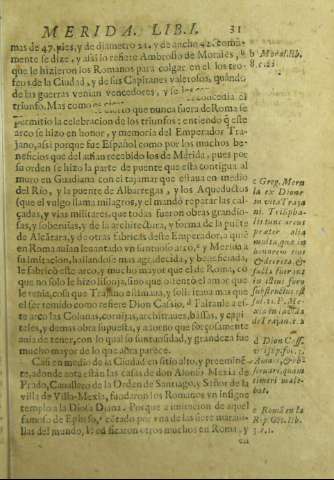 MERIDA. LIB. I. 31
mas de 47. pies, y de diametro 21. y de ancho 42. coma-
mente se dize, y assi lo refiere Ambrosio de Morales, b
que le hizieron los Romanos para colgar en el los tro-
feos de la Ciudad, y de sus Capitanes valerosos, quando
de las guerras venian vencedores, y se concedia el
triunfo. Mas como que nunca fuera de Roma se
permitio la celebracion de los triunfos: entiendo q̃ este
arco se hizo en honor, y memoria del Emperador Tra-
jano, assi porque fue Español como por los muchos be-
neficios que del auian recebido los de Mérida, pues por
su orden se hizo la parte de puente que esta contigua al
muro en Guadiana con el tajamar que estaua en medio
del Rio, y la puente de Albarregas, y los Aqueductos
(que el vulgo llama milagros, y el mandò reparar las cal-
çadas, y vias militares, que todas fueron obras grandio-
sas, y soberuias, y de la architectura, y forma de la puẽte
de Alcãtara, y de otras fabricas deste Emperador, a quiẽ
en Roma auian leuantado vn suntuoso arco, y Merida a
su imitacion, hallandose mas agradecida, y beneficiada,
le fabricò este arco, y mucho mayor que el de Roma, cõ
que no solo le hizo lisonja, sino que ostentò el amor que
le tenia, con que Trajano estimaua, y
el ser temido como refiere Dion Cassio, d Faltanle a es-
te arco las Colunas, cornijas, architraues, bassas, y capi-
teles, y demas obra supuesta, y a tono que forçosamente
auia de tener, con lo qual su suntuosidad, y grandeza fue
mucho mayor de lo que aora parece.
Casi en medio de la Ciudad en sitio alto, y preeminẽ-
te, adonde aora estàn las casas de don Alonso Mexia de
Prado, Cauallero de la Orden de Santiago, y Señor de la
villa de Villa-Mexia, fundaron los Romanos vn insigne
templo a la Diosa Diana. Porque a imitacion de aquel
famoso de Epheso, cõtado por vna de las siete maraui-
llas del mundo, edificaron otros muchos en Roma, y
en
b Moral. lib.
8. c. 23
c Greg. Mern
la ex Dione
in vita Traja
ni. Triũpha
li tunc arcus
præter alia
multa, quæ in
honorem eius
in
facta fuerint
d Dion Cass.
e Romã en la
Rep. Gẽt. lib.
3. c. 1.